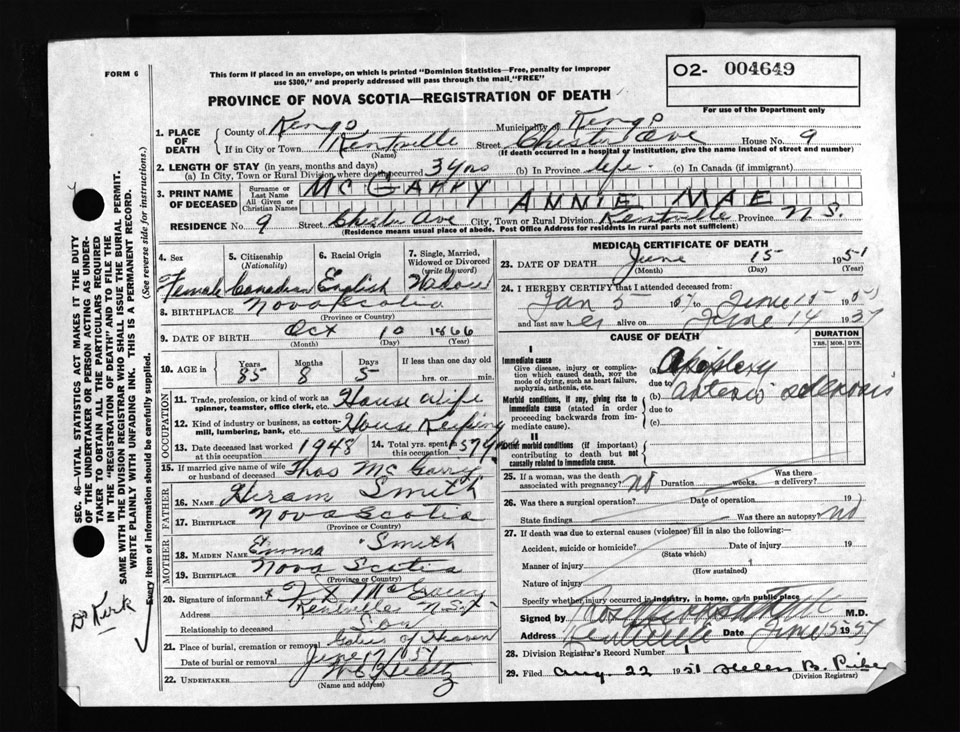 FORM 6
This form if placed in an envelope, on which is printed "Dominion Statistics—Free, penalty for improper
use $300," and properly addressed will pass through the mail "FREE"
02- 004649
For use of the Department only
PROVINCE OF NOVA SCOTIA—REGISTRATION OF DEATH
1. PLACE OF DEATH
County of Kings Municipality of Kings
If in City or Town Kentville Street Chester Ave House No. 9
(Name) (If death occurred in a hospital or institution, give the name instead of street and number)
2. LENGTH OF STAY (in years, months and days)
(a) In City, Town or Rural Division where death occurred 3 yrs (b) In Province life (c) In Canada (if immigrant)
3. PRINT NAME OF DECEASED
Surname or Last Name McGARRY
All Given or Christian Names ANNIE MAE
RESIDENCE No. 9 Street Chester Ave City, Town or Rural Division Kentville Province N.S.
(Residence means usual place of abode. Post Office Address for residents in rural parts not sufficient)
4. Sex Female
5. Citizenship (Nationality) Canadian
6. Racial Origin English
7. Single, Married, Widowed or Divorced (write the word)
8. BIRTHPLACE Nova Scotia
(Province or Country)
9. DATE OF BIRTH Oct 10 1866
(Month) (Day) (Year)
10. AGE in Years 85 Months 8 Days 5 If less than one day old
hrs. or min.
OCCUPATION
11. Trade, profession, or kind of work as spinner, teamster, office clerk, etc. House wife
12. Kind of industry or business, as cotton-mill, lumbering, bank, etc. House Keeping
13. Date deceased last worked at this occupation 1948
14. Total yrs. spent in this occupation 57 yrs
15. If married give name of wife or husband of deceased Thos McGarry
FATHER
16. NAME Hiram Smith
17. BIRTHPLACE Nova Scotia
(Province or Country)
MOTHER
18. MAIDEN NAME Emma Smith
19. BIRTHPLACE Nova Scotia
(Province or Country)
20. Signature of informant McGarry
Address Kentville N.S.
Relationship to deceased Son
21. Place of burial, cremation or removal Gates of Heaven
Date of burial or removal June 17 1951
22. UNDERTAKER
(Name and address)
MEDICAL CERTIFICATE OF DEATH
23. DATE OF DEATH June 15 1951
(Month) (Day) (Year)
24. I HEREBY CERTIFY that I attended deceased from:
Jan 5 1951 to June 15 1951
and last saw her alive on June 14 19
CAUSE OF DEATH
DURATION
YRS. MOS. DYS.
I
Immediate cause
Give disease, injury or complication which caused death, not the mode of dying, such as heart failure, asphyxia, asthenia, etc.
(a) Apoplexy
due to
Morbid conditions, if any, giving rise to immediate cause (stated in order proceeding backwards from immediate cause).
(b) arterio sclerosis
due to
(c)
II
Other morbid conditions (if important) contributing to death but not causally related to immediate cause.
25. If a woman, was the death associated with pregnancy? no Duration weeks. Was there a delivery?
26. Was there a surgical operation? Date of operation 19
State findings Was there an autopsy? no
27. If death was due to external causes (violence) fill in also the following:—
Accident, suicide or homicide? Date of injury 19
(State which)
Manner of injury
(How sustained)
Nature of injury
Specify whether injury occurred in industry, in home, or in public place
Signed by M.D.
Address Kentville Date June 15 1951
28. Division Registrar's Record Number
29. Filed Aug. 22 1951 Helen B.
(Division Registrar)
SEC. 46—VITAL STATISTICS ACT MAKES IT THE DUTY
OF THE UNDERTAKER OR PERSON ACTING AS UNDER-
TAKER TO OBTAIN ALL THE PARTICULARS REQUIRED
IN THE "REGISTRATION OF DEATH" AND TO FILE THE
SAME WITH THE DIVISION REGISTRAR WHO SHALL ISSUE THE BURIAL PERMIT.
WRITE PLAINLY WITH UNFADING INK. THIS IS A PERMANENT RECORD.
Every item of information should be carefully supplied. (See reverse side for instructions.)
Dr Kirk